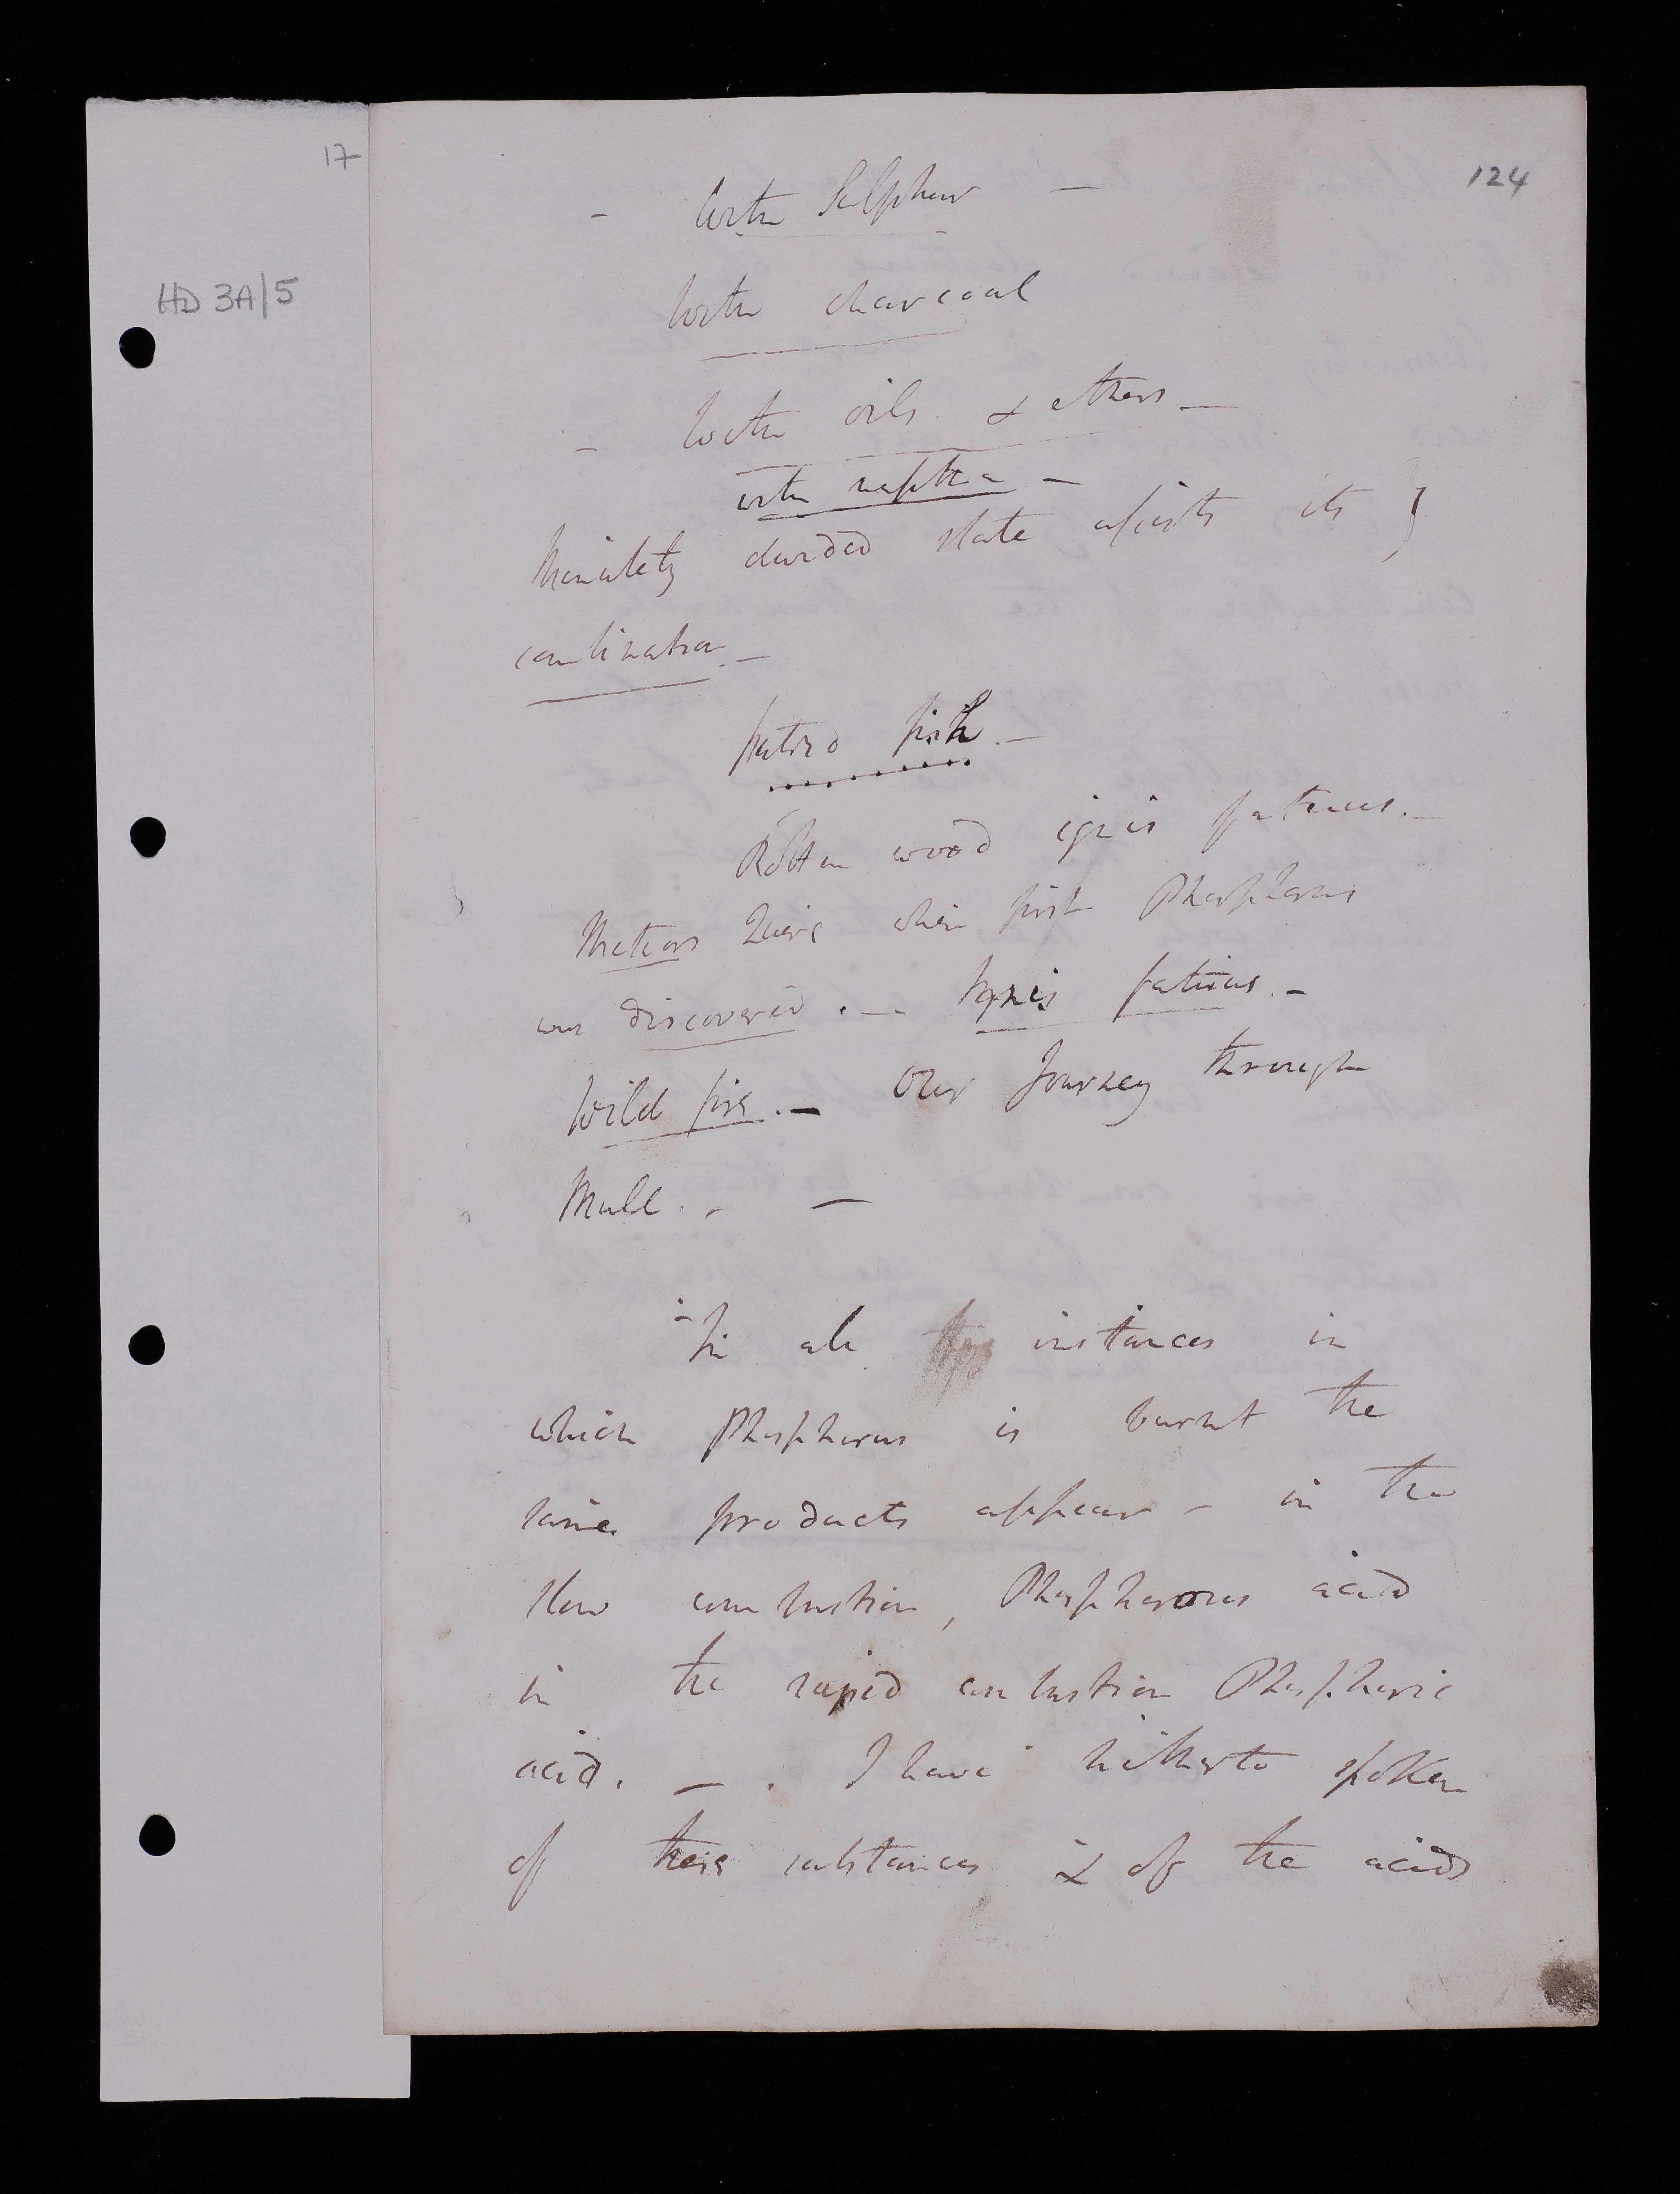 17
124
HD 3A/5
- With Sulphur -
With charcoal
- With oils & ethers -
with naptha -
Minutely divided state assists its }
combination. -
putrid fish. -
Rotten wood ignis fatuus. -
Meteors when first Phosphorus
was discovered. - Ignis fatuus. -
Wild fire. - Our Journey through
Mull. - -
- In all the instances in
which Phosphorus is burnt the
same products appear - in the
slow combustion, Phosphorous acid
in the rapid combustion Phosphoric
acid. - . I have hitherto spoken
of these substances & of the acids